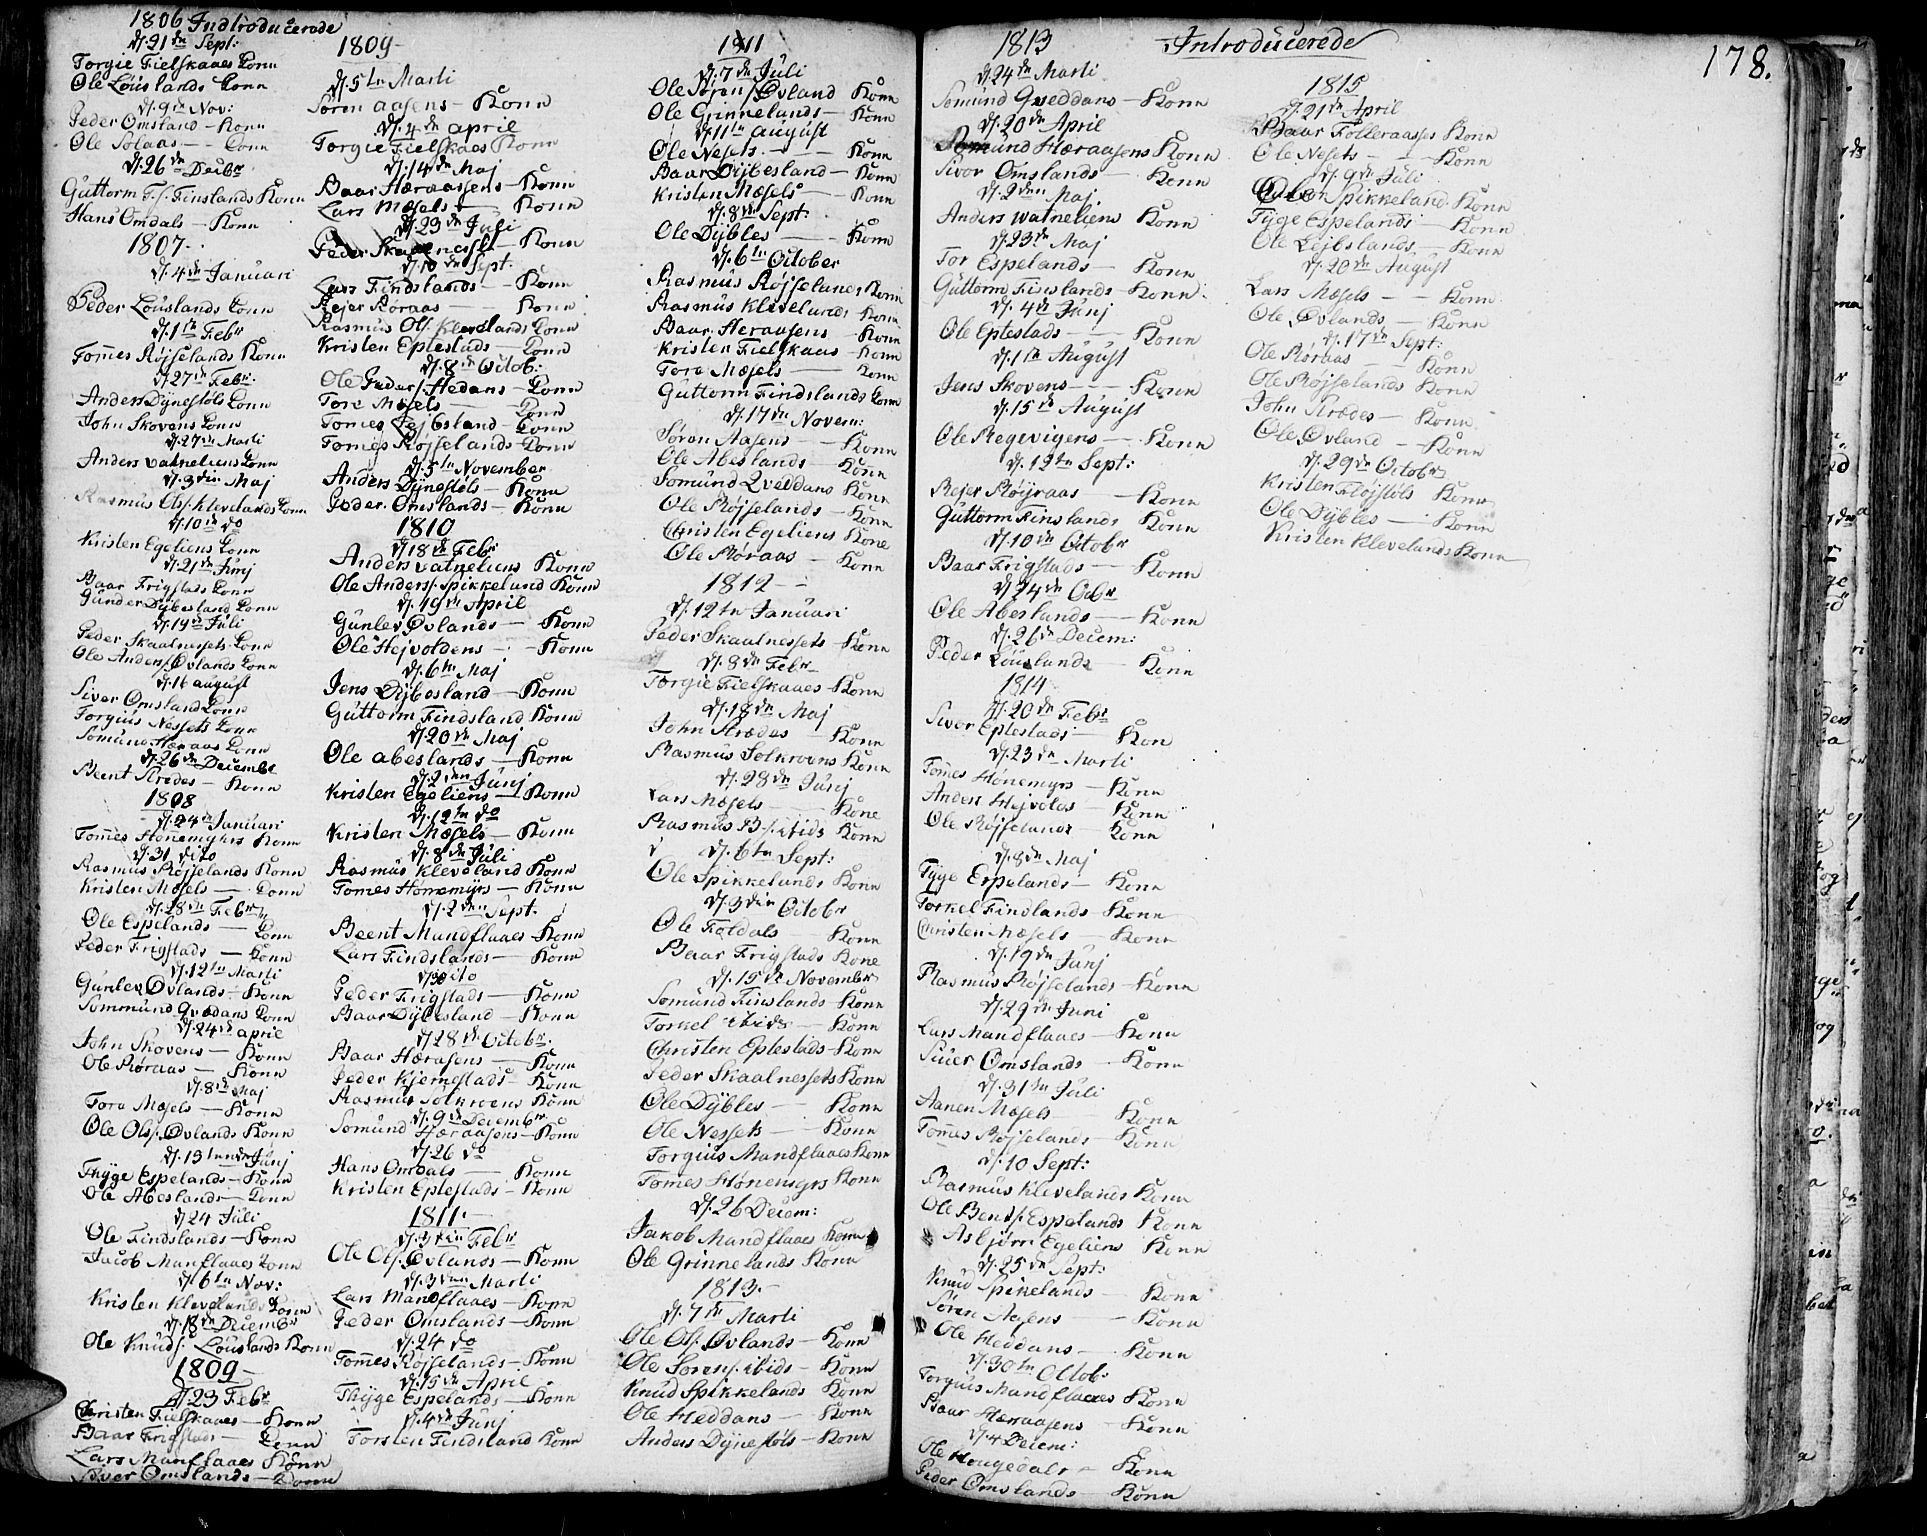 1806 Indtroducerede
d. 21de Sept:
Torgie Fielskaaes Konn
Ole Löuslands Konn
d. 9de Nov:
Peder Omsland - Konn
Ole Solaas - - Konn
d. 26de Decbr
Guttorm Finslands Konn
Hans Omdals - Konn
1807.
d. 4de Januari
Peder Löuslands Konn
d. 1te Febr
Tomes Röjselands Konn
d. 27de Febr:
Anders Dÿnestöls Konn
John Skovens Konn
d. 27de Marti
Anders Vatneliens Konn
d. 3die Maj
Rasmus Ols: Klevelands Konn
d. 10de do
Kristen Egeliens Konn
d. 21de Junj
Baar Frigstads Konn
Gunder Dÿbesland Konn
d. 19de Juli
Peder Skaalnessets Konn
Ole Anders: Øvlands Konn
d. 16 august
Siver Omsland Konn
Torgius Nessets Konn
Somund Hæraas Konn
d. 26de Decembr
Beent Krædes - Konn
1808
d. 24de Januari
Tomes Honnemyhrs Konn
d. 31 dito
Rasmus Röjselands Konn
Kristen Mæsels - Konn
d. 28de Febr
Ole Espelands - Konn
Peder Frigstads - Konn
d. 12te Marti
Gunlev Øvlands - Konn
Sommund Qvedans Konn
d. 24de april
John Skovens - Konn
Ole Röraas - Konn
d. 8de Maj
Tora Mæsels - Konn
Ole Ols: Øvlands Konn
d. 13tende Junj
Thÿge Espelands - Konn
Ole Abeslands - Konn
d. 24 Juli
Ole Findslands - Konn
Jacob Manflaaes Konn
d. 6te Nov:
Kristen Klevelands Konn
d. 18de Decembr
Ole Knuds: Löuslands Konn
1809
d. 23 Febr
Christen Fielskaaes - Konn
Baar Frigstads - Konn
Lars Manflaaes Konn
Siver Omslands - Konn
1809
d. 5te Marti
Sören Aasens - Konn
d. 4de april
Torgie Fielskaaes Konn
d. 14de Maj
Baar Hæraassens - Konn
Lars Mæsels - Konn
d. 23de Juli
Peder Skaalnessets - Konn
d. 10de Sept:
Lars Findslands - Konn
Rejer Röraas - Konn
Rasmus Ols: Klevelands Konn
Kristen Eptestads - Konn
d. 8de Octob:
Ole Peders: Hedans - Konn
Tore Mæsels - Konn
Tomes Lejbsland - Konn
Tomes Röjselands - Konn
d. 5te November
Anders Dÿnestöls - Konn
Peder Omslands - Konn
1810
d. 18de Febr
Anders Vatneliens Konn
Ole Anders: Spikkeland Konn
d. 19de April
Gunlev Øvlands - Konn
Ole Hejvoldens - Konn
d. 6te Maj
Jens Dÿbesland - Konn
Guttorm Findsland Konn
d. 20de Maj
Ole abeslands - Konn
d. 2den Junj
Kristen Egeliens - Konn
d. 12te do
Kristen Mæsels - Konn
d. 8de Juli
Rasmus Kleveland Konn
Tomes Honnemÿrs - Konn
d. 2den Sept.
Beent Mandflaaes - Konn
Lars Findslands - Konn
d. 30 ito
Peder Frigstads - Konn
Baar Dÿbesland - Konn
d. 28de Octobr.
Baar Hærasens - Konn
Peder Kjernestads - Konn
Rasmus Solkroens Konn
d. 9de Decembr
Somund Hæraasens - Konn
d. 26 do
Hans Omdals - Konn
Kristen Eptestads - Konn
1811.
d. 3den Febr
Ole Ols: Øvlands - Konn
d. 3den Marti
Lars Mandflaaes - Konn
Peder Omslands - Konn
d. 24 do
Tomes Röjselands - Konn
d. 15de April
Thÿge Espelands - Konn
d. 4de Junj
Torsten Findsland Konn
1811
d. 7de Juli
Ole Sörens: Øvland Konn
Ole Grinnelands - Konn
d. 11te august
Ole Nesets - - Konn
Baar Dÿbesland - Konn
Kristen Mæsels - Konn
d. 8de Sept:
Ole Dÿbles - Konn
d. 6te October
Rasmus Röjselands Konn
Rasmus Klevelands Konn
Baar Heraasens - Konn
Kristen Fielskaas - Konn
Tora Mæsels - Konn
Guttorm Findslands Konn
d. 17de Novem:
Sören Aasens - Konn
Ole Abeslands - Konn
Somund Qveddans Konn
Ole Röjselands - Konn
Christen Egeliens Kone
Ole Röraas - Konn
1812 -
d. 12te Januari
Peder Skaalnessets - Konn
d. 8de Febr
Torgie Fielskaaes - Konn
d. 18de Maj
John Krædes - Konn
Rasmus Solkroens Konn
d. 28de Junj
Lars Mæsels - Kone
Rasmus B: ibids Konn
d. 6te Sept:
Ole Spikkelands Konn
d. 3die Octobr
Ole Foldals - Konn
Baar Frigstads Kone
d. 15de Novembr
Somund Finslands - Konn
Torkel ibids - Konn
Christen Eptestads - Konn
Peder Skaalnessets Konn
Ole Dÿbles - Konn
Ole Nessets - Konn
Torgius Mandflaaes Konn
Tomes Hönemyrs Konn
d. 26 Decem:
Jakob Mandflaaes Konn
Ole Grinnelands Konn
1813.
d. 7de Marti
Ole Ols: Øvlands - Konn
Ole Sörens: ibids - Konn
Knud Spikkelands - Konn
Ole Heddans - Konn
Anders Dÿnestöls - Konn
1813 Introducerede 178.
d. 24de Marti
Somund Qveddans - Konn
d. 20de April
Somund Hæraasens Konn
Sivor Omslands - Konn
d. 2den Maj.
Anders Watneliens Konn
d. 23de Maj
Tor Espelands - Konn
Guttorm Finslands - Konn.
d. 4de Junj
Ole Eptestads - - Konn
d. 1te August
Jens Skovens - - - Konn
d. 15de August
Ole Regevigens - Konn
d. 12te Sept:
Rejer Röijraas - Konn
Guttorm Finslands Konn
d. 10de Octobr
Baar Frigstads - Konn
d. 24de Ocbr
Ole Abeslands - Konn
d. 26de Decem:
Peder Löuslands - Konn
1814.
d. 20de Febr
Sivor Eptestads - Kon
d. 23de Marti
Tomes Hönemyrs - Konn
Anders Hejvolds - Konn
Ole Röjselands - Konn
d. 8de Maj
Tyge Espelands - Konn
Torkel Findlands - Konn
Christen Mæsels - Konn
d. 19de Junj
Rasmus Röjselands - Konn
d. 29de Juni
Lars Mandflaaes - Konn
Siuer Omslands - Konn
d. 31te Juli
Aanen Mæsels - Konn
Tomes Röjselands - Konn
d. 10 Sept:
Rasmus Klevelands Konn
Ole Bends: Espelands Konn
Asbjörn Egeliens Konn
d. 25de Sept:
Knud Spikelands - Konn
Sören Aasens - Konn
Ole Heddans - Konn
d. 30te Octob.
Torgius Mandflaaes Konn
Baar Hæraasens - Konn
d. 4 Decem:
Ole Hougedals - Konn
Peder Omslands - Konn
1815
d. 21de April
Baar Folleraasses Konn
Ole Nesets - - Konn
d. 9de Juli
Spikkeland Konn
Tyge Espelands - Konn
Ole Lejbslands - Konn
d. 20de August
Lars Mæsels - - Konn
Ole Øvlands - Konn
d. 17de Sept:
Ole Röraas - Konn
Ole Röjselands Konn
John Krædes - Konn
Ole Øvland - Konn
d. 29de Octobr
Kristen Flöjstöls Konn
Ole Dÿbles - Konn
Kristen Klevelands Konn